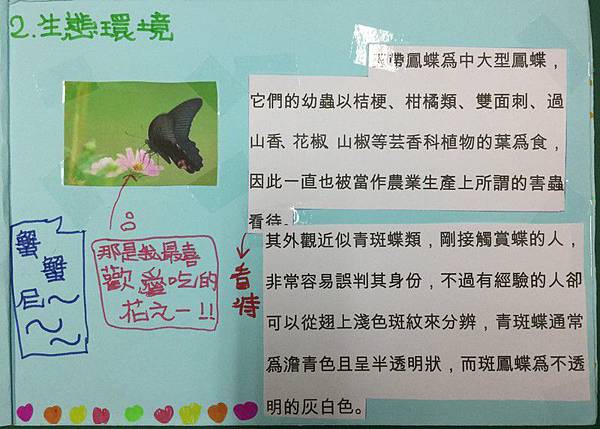 2.生態環境
帶鳳蝶爲中大型鳳蝶，
它們的幼蟲以桔梗、柑橘類、雙面刺、過
山香、花椒、山椒等芸香科植物的葉爲食，
因此一直也被當作農業生產上所謂的害蟲
看待。
看待
其外觀近似青斑蝶類，剛接觸賞蝶的人，
非常容易誤判其身份，不過有經驗的人卻
可以從翅上淺色斑紋來分辨，青斑蝶通常
爲澹青色且呈半透明狀，而斑鳳蝶爲不透
明的灰白色。
那是我最喜
歡愛吃的
花之一!!
蟹
蟹
尼~
~
~